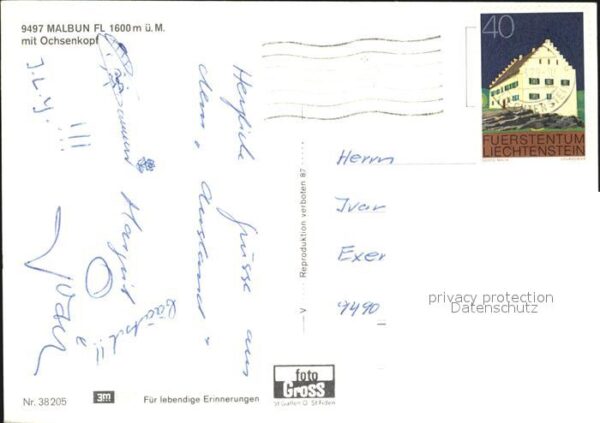 9497 MALBUN FL 1600 m ü. M.
mit Ochsenkopf
Herzliche Grüsse aus
dem „Ausland“
Margrit
I.L.Y. !!!
40
FUERSTENTUM
LIECHTENSTEIN
Herrn
Ivar
Exer
9490
privacy protection
Datenschutz
V Reproduktion verboten 87
foto
Gross
St Gallen O. St Fiden
Nr. 38 205
3m
Für lebendige Erinnerungen